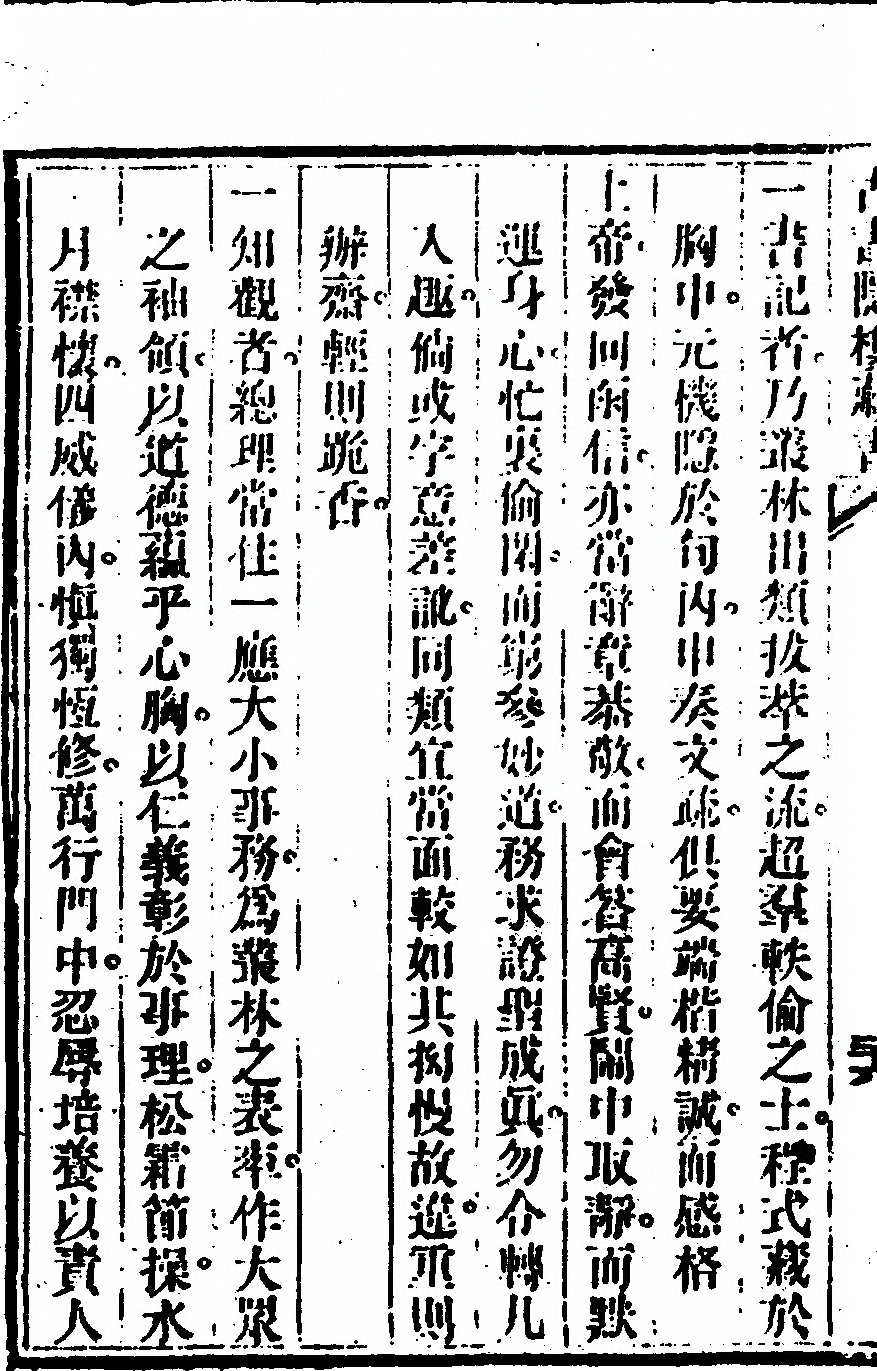 古書隱樓藏書
一書記者乃叢林出類拔萃之流。超羣軼倫之士。程式藏於
胸中。元機隱於句內。申奏文疏。俱要端楷精誠。而感格
上帝。發回函信。亦當辭章恭敬。而會答高賢。鬧中取靜。而默
運身心。忙裏偷閑。而窮參妙道。務求證聖成眞。勿令轉凡
入趣。倘或字意差訛。同類宜當面較。如其拗慢故違。重則
辦齋。輕則跪香。
一知觀者。總理常住一應大小事務。爲叢林之表率。作大眾
之袖領。以道德蘊乎心胸。以仁義彰於事理。松筠節操。水
月襟懷。四威儀內。愼獨恆修。萬行門中。忍辱培養。以責人